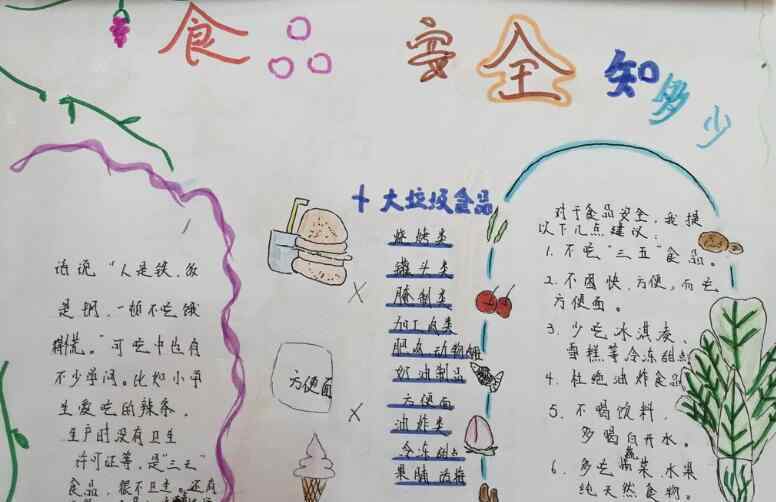 食品安全知多少
话说，“人是铁，饭
是钢，一顿不吃饿
得慌。”可吃中也有
不少学问。比如小学
生爱吃的辣条，
生产时没有卫生
许可证等，是“三无”
食品，很不卫生。还有
十大垃圾食品
烧烤类
罐头类
腌制类
加工肉类
肥肉、动物
奶油制品
方便面
油炸类
冷冻甜点
果脯
方便面
对于食品安全，我提
以下几点建议：
1. 不吃“三五”食品。
2. 不图快、方便，而吃
方便面。
3. 少吃冰淇凌、
雪糕等冷冻甜点
4. 杜绝油炸食品
5. 不喝饮料，
多喝白开水。
6. 多吃蔬菜、水果
纯天然食物